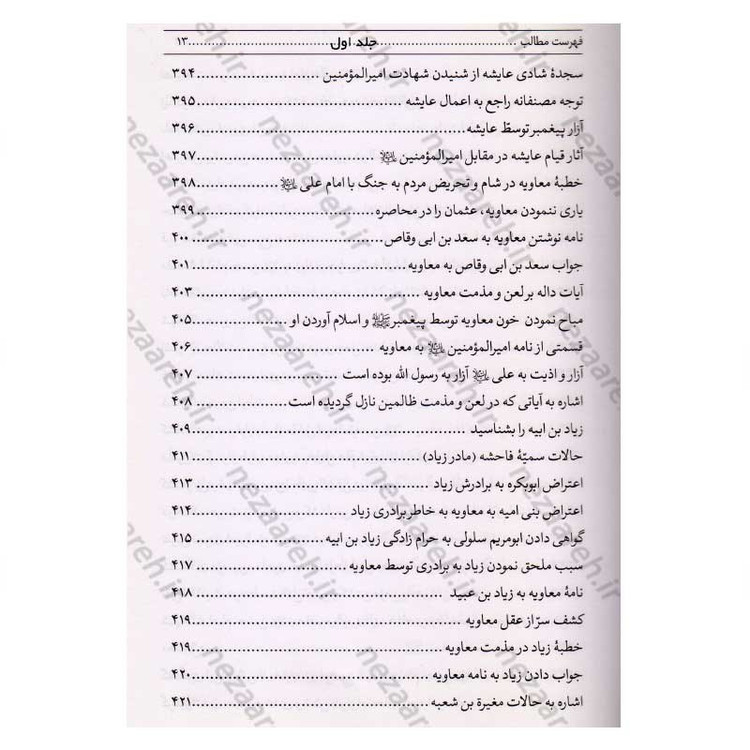 فهرست مطالب ........ جلد اول ........ ۱۳
سجدهٔ شادی عایشه از شنیدن شهادت امیرالمؤمنین ........ ۳۹۴
توجه مصنفانه راجع به اعمال عایشه ........ ۳۹۵
آزار پیغمبر توسط عایشه ........ ۳۹۶
آثار قیام عایشه در مقابل امیرالمؤمنین ........ ۳۹۷
خطبهٔ معاویه در شام و تحریض مردم به جنگ با امام علی ........ ۳۹۸
یاری ننمودن معاویه، عثمان را در محاصره ........ ۳۹۹
نامه نوشتن معاویه به سعد بن ابی وقاص ........ ۴۰۰
جواب سعد بن ابی وقاص به معاویه ........ ۴۰۱
آیات داله بر لعن و مذمت معاویه ........ ۴۰۳
مباح نمودن خون معاویه توسط پیغمبرﷺ و اسلام آوردن او ........ ۴۰۵
قسمتی از نامه امیرالمؤمنین به معاویه ........ ۴۰۶
آزار و اذیت به علی آزار به رسول الله بوده است ........ ۴۰۷
اشاره به آیاتی که در لعن و مذمت ظالمین نازل گردیده است ........ ۴۰۸
زیاد بن ابیه را بشناسید ........ ۴۰۹
حالات سمیّهٔ فاحشه (مادر زیاد) ........ ۴۱۱
اعتراض ابوبکره به برادرش زیاد ........ ۴۱۳
اعتراض بنی امیه به معاویه به خاطر برادری زیاد ........ ۴۱۴
گواهی دادن ابومریم سلولی به حرام زادگی زیاد بن ابیه ........ ۴۱۵
سبب ملحق نمودن زیاد به برادری توسط معاویه ........ ۴۱۷
نامهٔ معاویه به زیاد بن عبید ........ ۴۱۸
کشف سرّ از عقل معاویه ........ ۴۱۹
خطبهٔ زیاد در مذمت معاویه ........ ۴۱۹
جواب دادن زیاد به نامه معاویه ........ ۴۲۰
اشاره به حالات مغیرة بن شعبه ........ ۴۲۱
nezaareh.ir